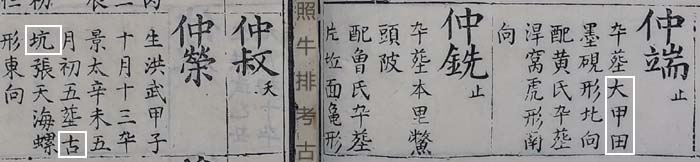 仲端 止
卒塟大甲田
墨硯形北向
配黄氏卒塟
淂窝虎形南
向
仲銑 止
卒塟本里鱉
頭陂
配魯氏卒塟
片垃面亀形
照牛排考古
仲叔 夭
仲榮
生洪武甲子
十月十三卒
景太辛未五
月初五塟古
坑張天海螺
形東向